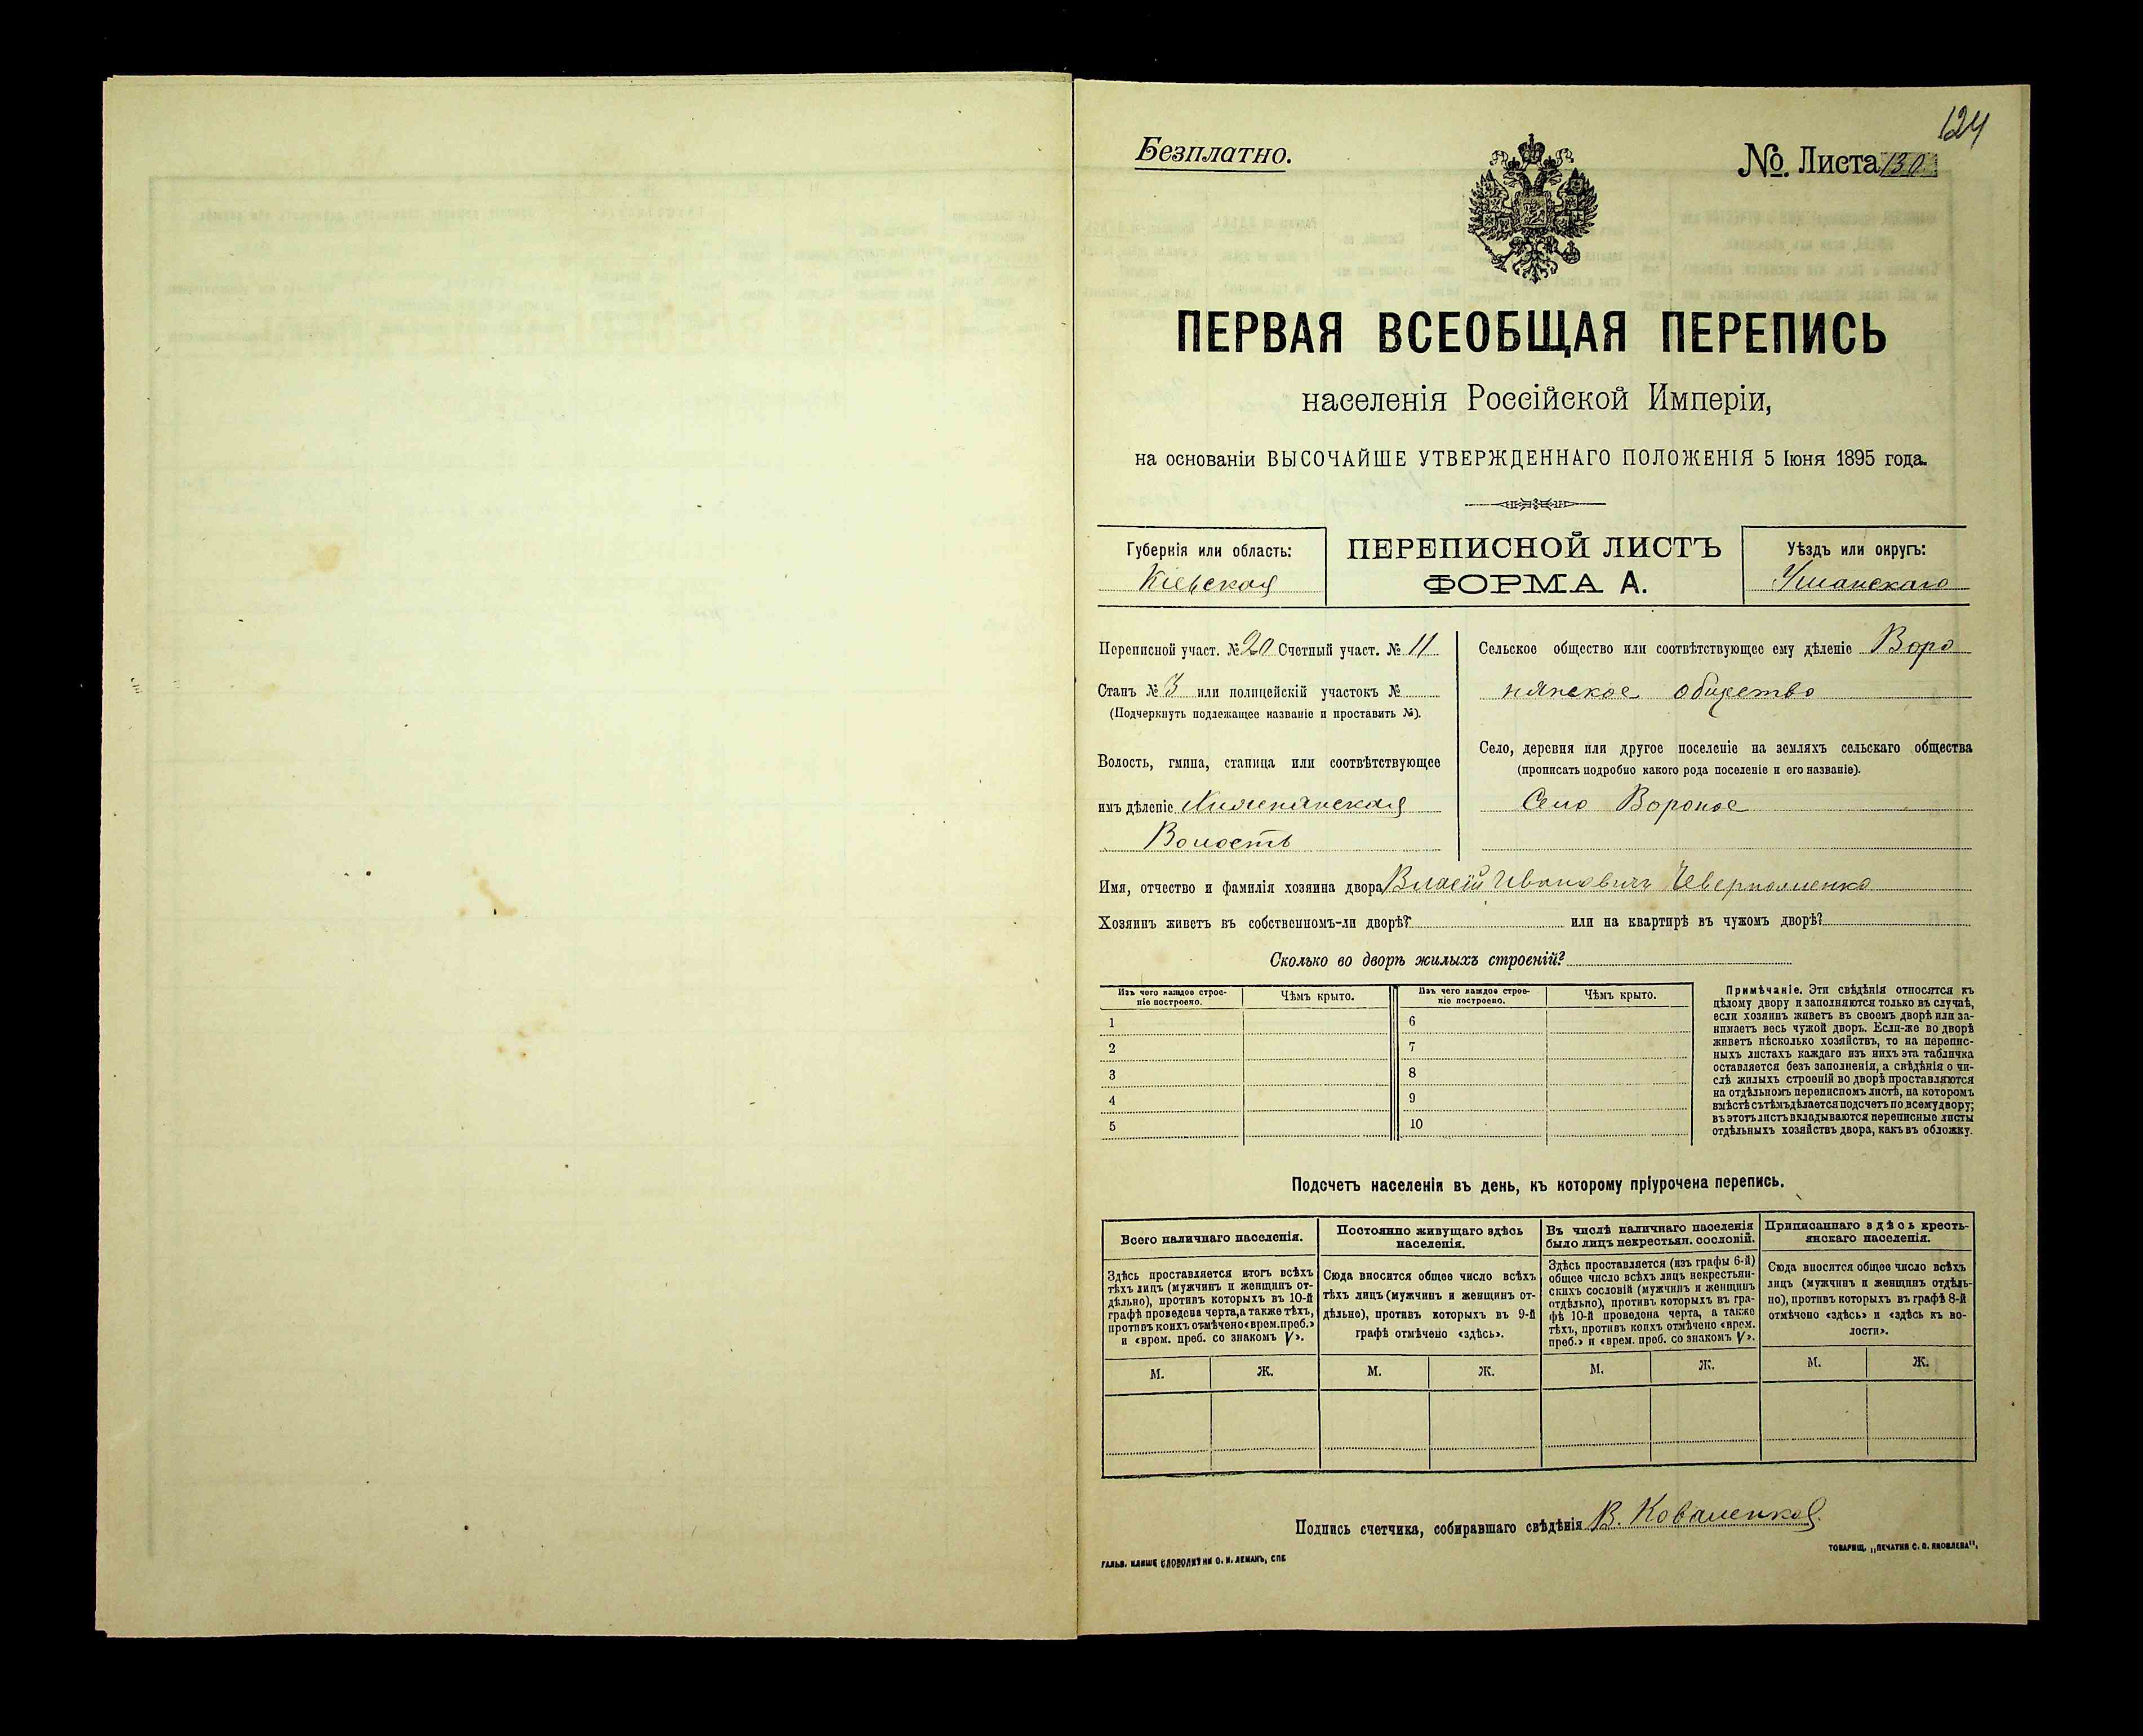 124
Безплатно.
№. Листа 130
ПЕРВАЯ ВСЕОБЩАЯ ПЕРЕПИСЬ
населенія Россійской Имперіи,
на основаніи ВЫСОЧАЙШЕ УТВЕРЖДЕННАГО ПОЛОЖЕНІЯ 5 Іюня 1895 года.
Губернія или область:
Кіевская
ПЕРЕПИСНОЙ ЛИСТЪ
ФОРМА А.
Уѣздъ или округъ:
Уманскаго
Переписной участ. № 20 Счетный участ. № 11
Станъ № 3 или полицейскій участокъ №
(Подчеркнуть подлежащее названіе и проставить №).
Волость, гмина, станица или соотвѣтствующее
имъ дѣленіе
Волость
Сельское общество или соотвѣтствующее ему дѣленіе Воро
нянское общество
Село, деревня или другое поселеніе на земляхъ сельскаго общества
(прописать подробно какого рода поселеніе и его названіе).
Село Вороное
Имя, отчество и фамилія хозяина двора Власій Ивановичъ
Хозяинъ живетъ въ собственномъ-ли дворѣ? или на квартирѣ въ чужомъ дворѣ?
Сколько во дворѣ жилыхъ строеній?
Изъ чего каждое строе-
ніе построено.
Чѣмъ крыто.
Изъ чего каждое строе-
ніе построено.
Чѣмъ крыто.
1
6
2
7
3
8
4
9
5
10
Примѣчаніе. Эти свѣдѣнія относятся къ
цѣлому двору и заполняются только въ случаѣ,
если хозяинъ живетъ въ своемъ дворѣ или за-
нимаетъ весь чужой дворъ. Если-же во дворѣ
живетъ нѣсколько хозяйствъ, то на перепис-
ныхъ листахъ каждаго изъ нихъ эта табличка
оставляется безъ заполненія, а свѣдѣнія о чи-
слѣ жилыхъ строеній во дворѣ проставляются
на отдѣльномъ переписномъ листѣ, на которомъ
вмѣстѣ съ тѣмъ дѣлается подсчетъ по всему двору;
въ этотъ листъ вкладываются переписные листы
отдѣльныхъ хозяйствъ двора, какъ въ обложку.
Подсчетъ населенія въ день, къ которому пріурочена перепись.
Всего наличнаго населенія.
Здѣсь проставляется итогъ всѣхъ
тѣхъ лицъ (мужчинъ и женщинъ от-
дѣльно), противъ которыхъ въ 10-й
графѣ проведена черта, а также тѣхъ,
противъ коихъ отмѣчено «врем. преб.»
и «врем. преб. со знакомъ V».
Постоянно живущаго здѣсь
населенія.
Сюда вносится общее число всѣхъ
тѣхъ лицъ (мужчинъ и женщинъ от-
дѣльно), противъ которыхъ въ 9-й
графѣ отмѣчено «здѣсь».
Въ числѣ наличнаго населенія
было лицъ некрестьян. сословій.
Здѣсь проставляется (изъ графы 6-й)
общее число всѣхъ лицъ некрестьян-
скихъ сословій (мужчинъ и женщинъ
отдѣльно), противъ которыхъ въ гра-
фѣ 10-й проведена черта, а также
тѣхъ, противъ коихъ отмѣчено «врем.
преб.» и «врем. преб. со знакомъ V».
Приписаннаго здѣсь кресть-
янскаго населенія.
Сюда вносится общее число всѣхъ
лицъ (мужчинъ и женщинъ отдѣль-
но), противъ которыхъ въ графѣ 8-й
отмѣчено «здѣсь» и «здѣсь къ во-
лости».
М. Ж. М. Ж. М. Ж. М. Ж.
Подпись счетчика, собиравшаго свѣдѣнія В. Коваленко
ГАЛЬВ. КЛИШЕ СЛОВОЛИТНИ О. И. ЛЕМАНЪ, СПБ
ТОВАРИЩ. „ПЕЧАТНЯ С. П. ЯКОВЛЕВА“.